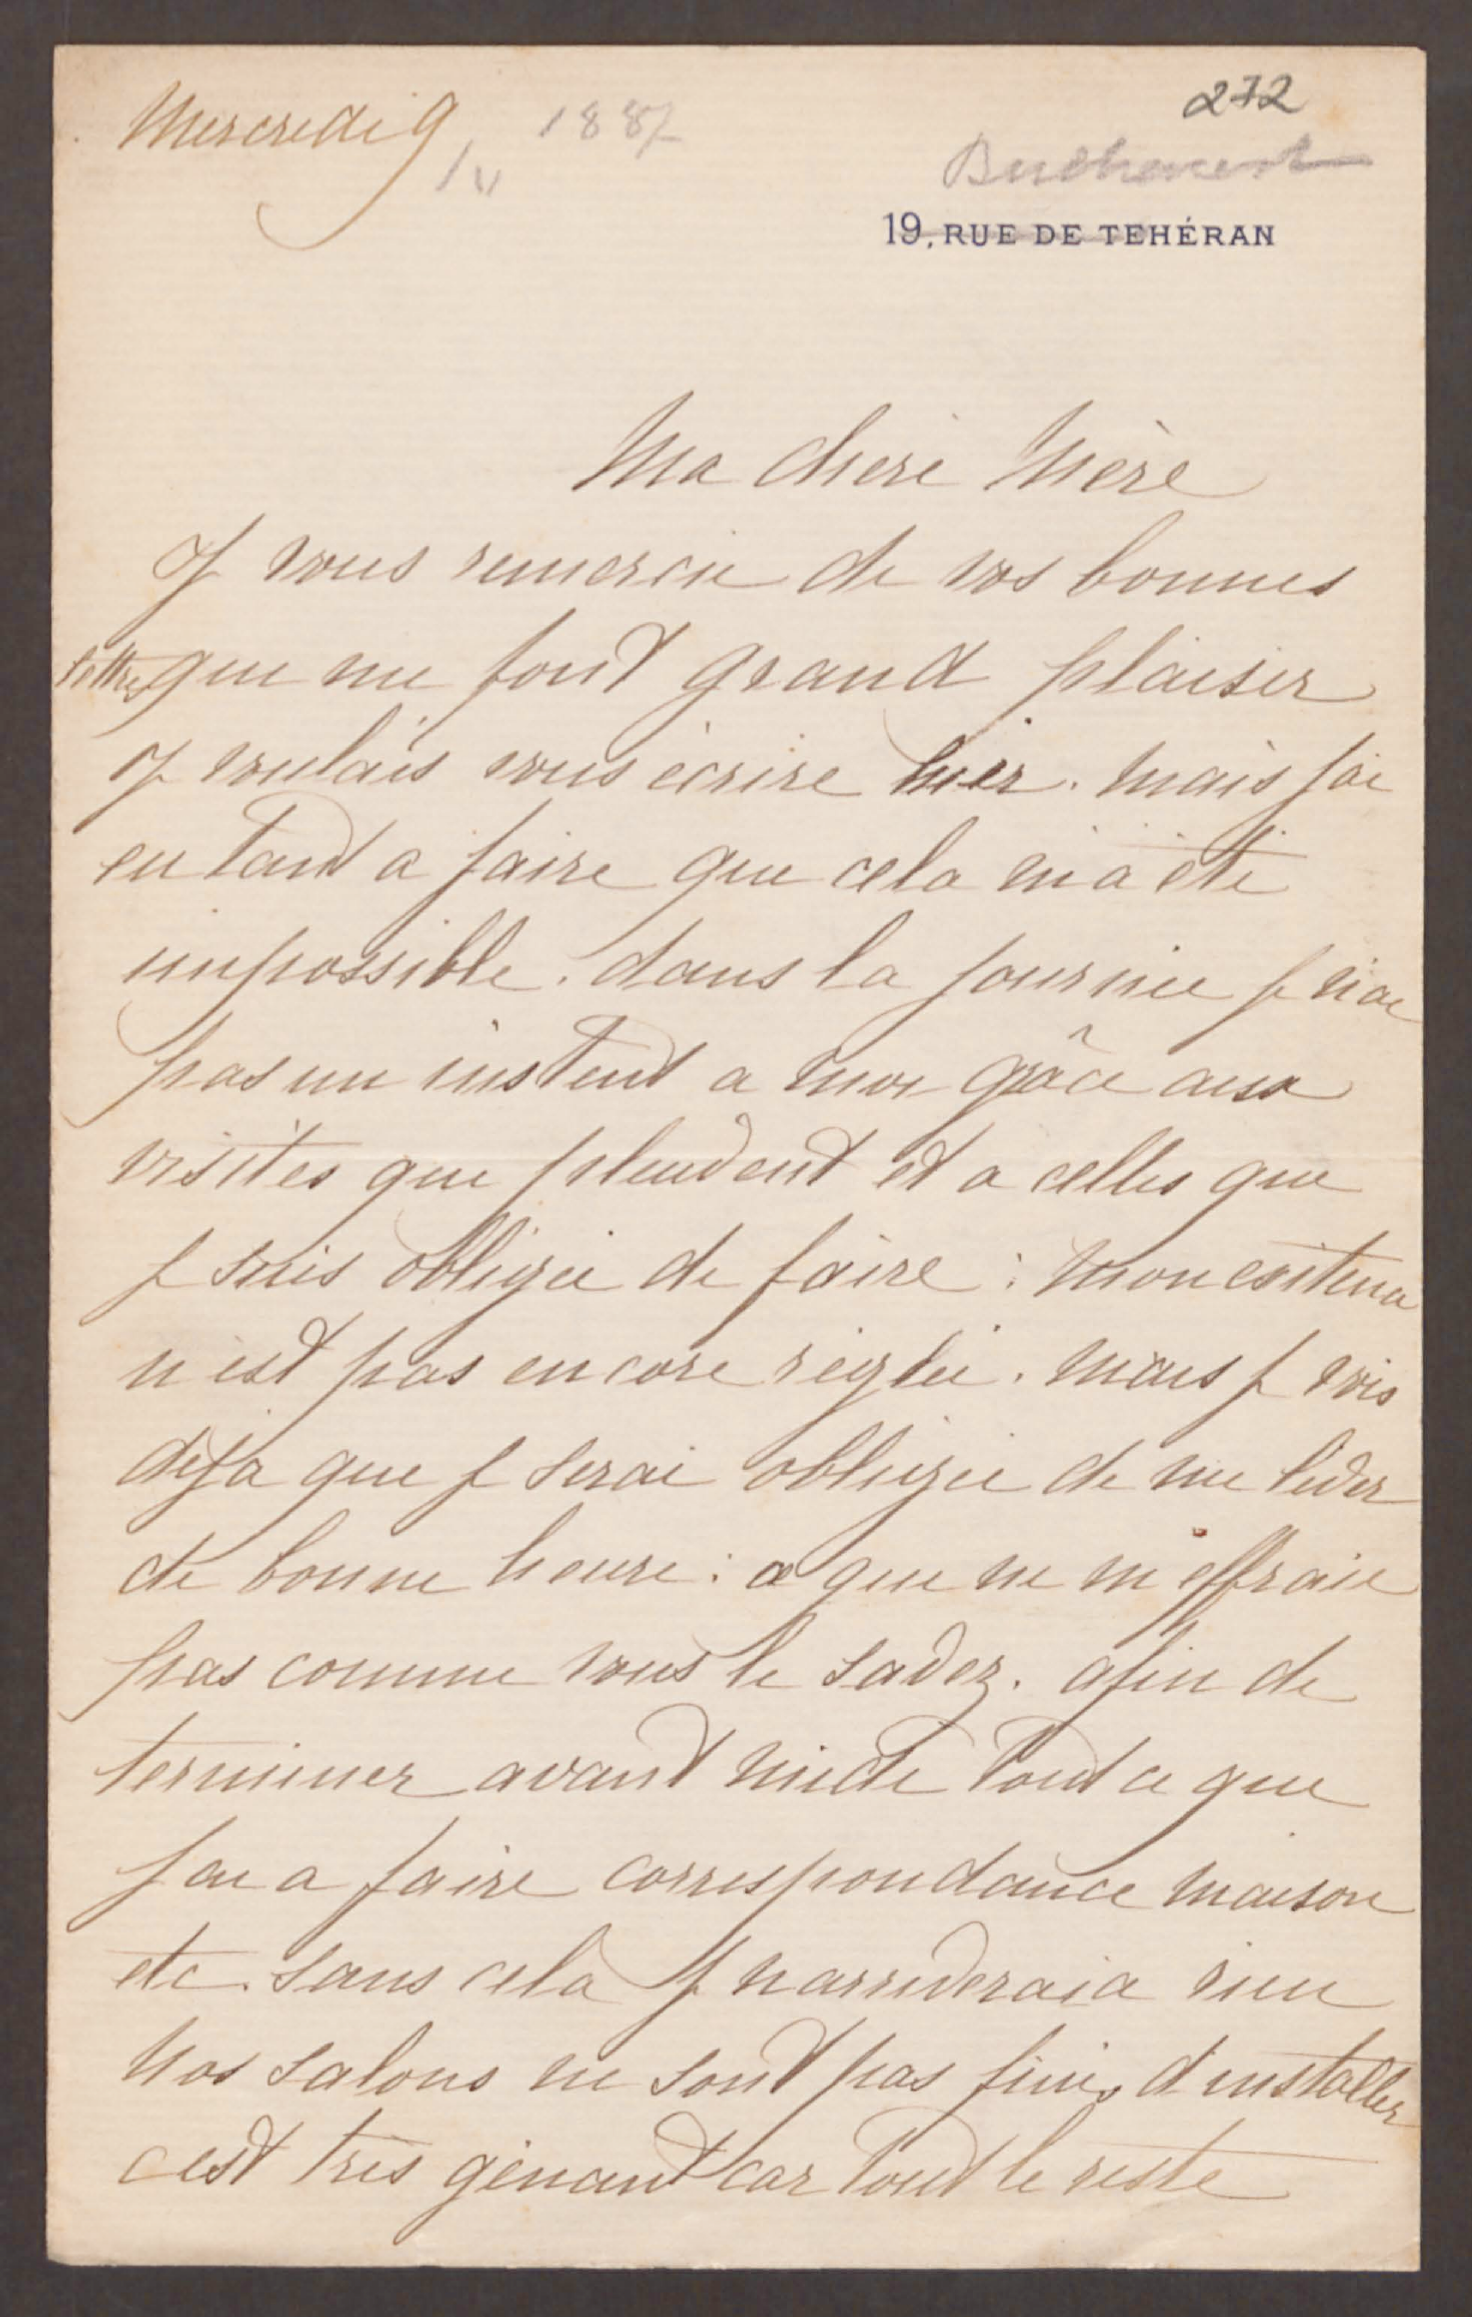 Mercredi 9
/V 1887
272
Bucharest
19, RUE DE TEHÉRAN
Ma chere Mère
Je vous remercie de vos bonnes
lettres qui me font grand plaisir
je voulais vous écrire hier. mais j'ai
eu tant a faire que cela m'a été
impossible. dans la journée je n'ai
pas un instent a moi grâce aux
visites qui pleuvent et a celles que
je suis obligée de faire : mon exitence
n'est pas encore réglée. mais je vois
déja que je serai obligée de me lever
de bonne heure : ce qui ne m'effraie
pas comme vous le savez. afin de
terminer avant midi tout ce que
j'ai a faire correspondance maison
etc. sans cela je n'arriverai a rien
Nos salons ne sont pas finis d'installer
c'est très gênant car tout le reste